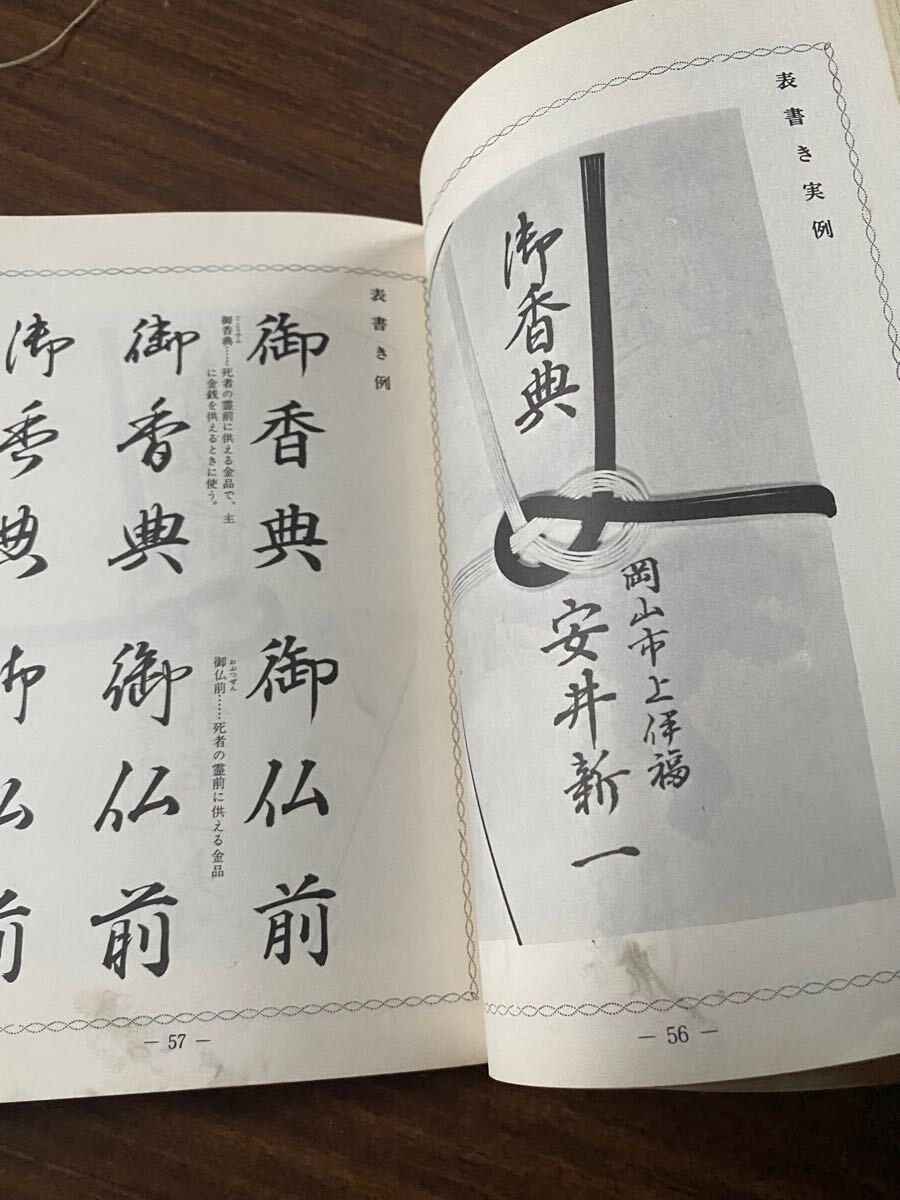 表書き実例
御香典
岡山市上伊福
安井新一
— 56 —
表書き例
御香典
御仏前
御香典……死者の霊前に供える金品で、主
に金銭を供えるときに使う。
おぶつぜん
御仏前……死者の霊前に供える金品
御香典
御仏前
御香典
御仏前
— 57 —